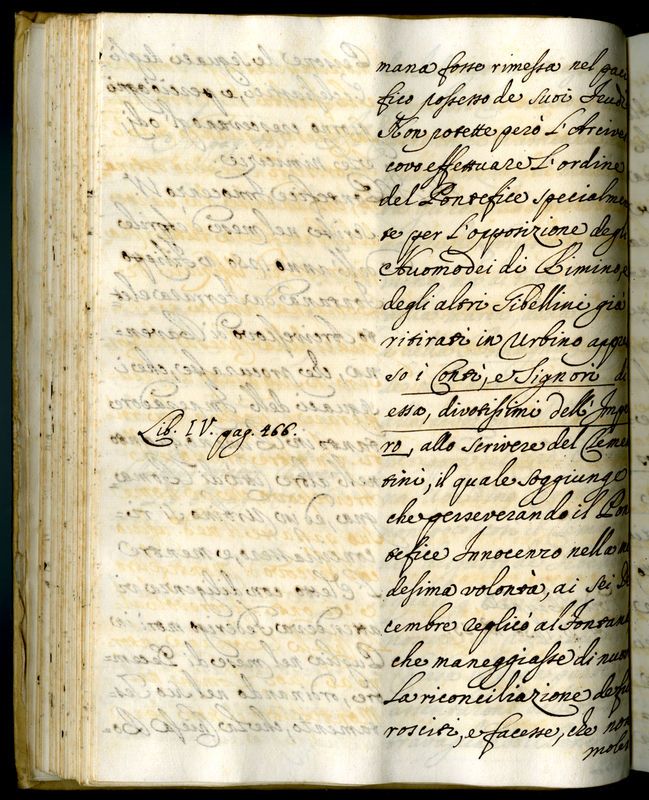 mana fosse rimessa nel paci
fico possesso de suoi Feudi
Non potette però l'Arcives
covo effettuare l'ordine
del Pontefice specialmen
te per l'opposizione degli
Nuomodei di Rimino, e
degli altri Gibellini già
ritirati in Urbino appres
so i Conti, e Signori di
essa, divotissimi dell'Impe
ro, allo scrivere del Cleme
tini, il quale soggiunge
che perseverando il Pon
tefice Innocenzo nella me
desima volontà, ai sei De
cembre replicò al Fontana
che maneggiasse di nuovo
la riconciliazione de fuo
rusciti, e facesse, che non
moles
Lib. IV. pag. 466.